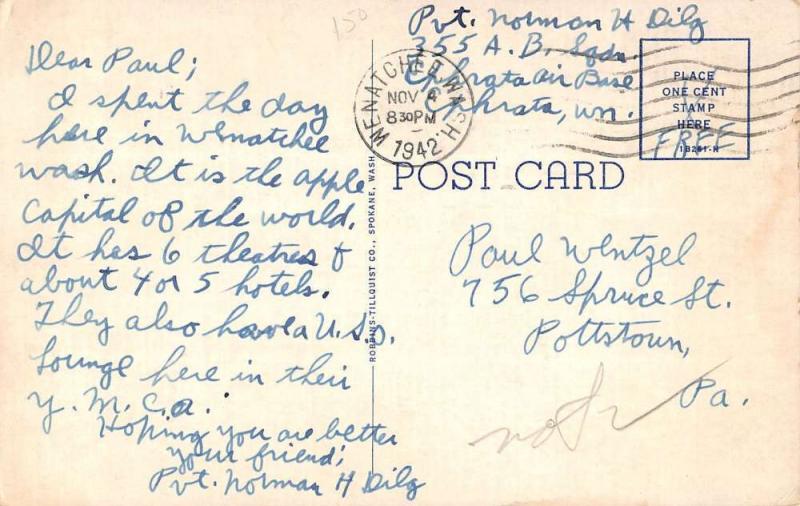 150
Dear Paul;
I spent the day
here in Wenatchee
Wash. It is the apple
Capital of the world.
It has 6 theatres &
about 4 or 5 hotels.
They also have a U.S.O.
Lounge here in their
Y.M.C.A.
Hoping you are better
your friend;
Pvt. Norman H Dilg
ROBBINS-TILLQUIST CO., SPOKANE, WASH.
Pvt. Norman H Dilg
355 A.B. Sqdn.
Ephrata Air Base
Ephrata, Wn.
WENATCHEE, WASH.
NOV 4
830PM
1942
PLACE
ONE CENT
STAMP
HERE
FREE
1B261-N
POST CARD
Paul Wentzel
756 Spruce St.
Pottstown,
Pa.